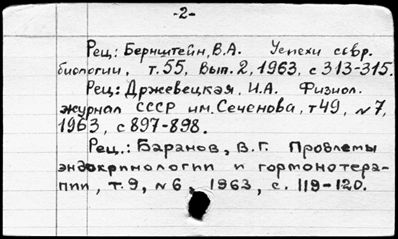 -2-
Рец.: Бернштейн, В.А. Успехи совр.
биологии, т.55, Вып.2, 1963, с 313-315.
Рец.: Држевецкая, И.А. Физиол.
журнал СССР им. Сеченова, т49, №7,
1963, с 897-898.
Рец.: Баранов, В.Г. Проблемы
эндокринологии и гормонотера-
пии, т.9, №6, 1963, с. 119-120.